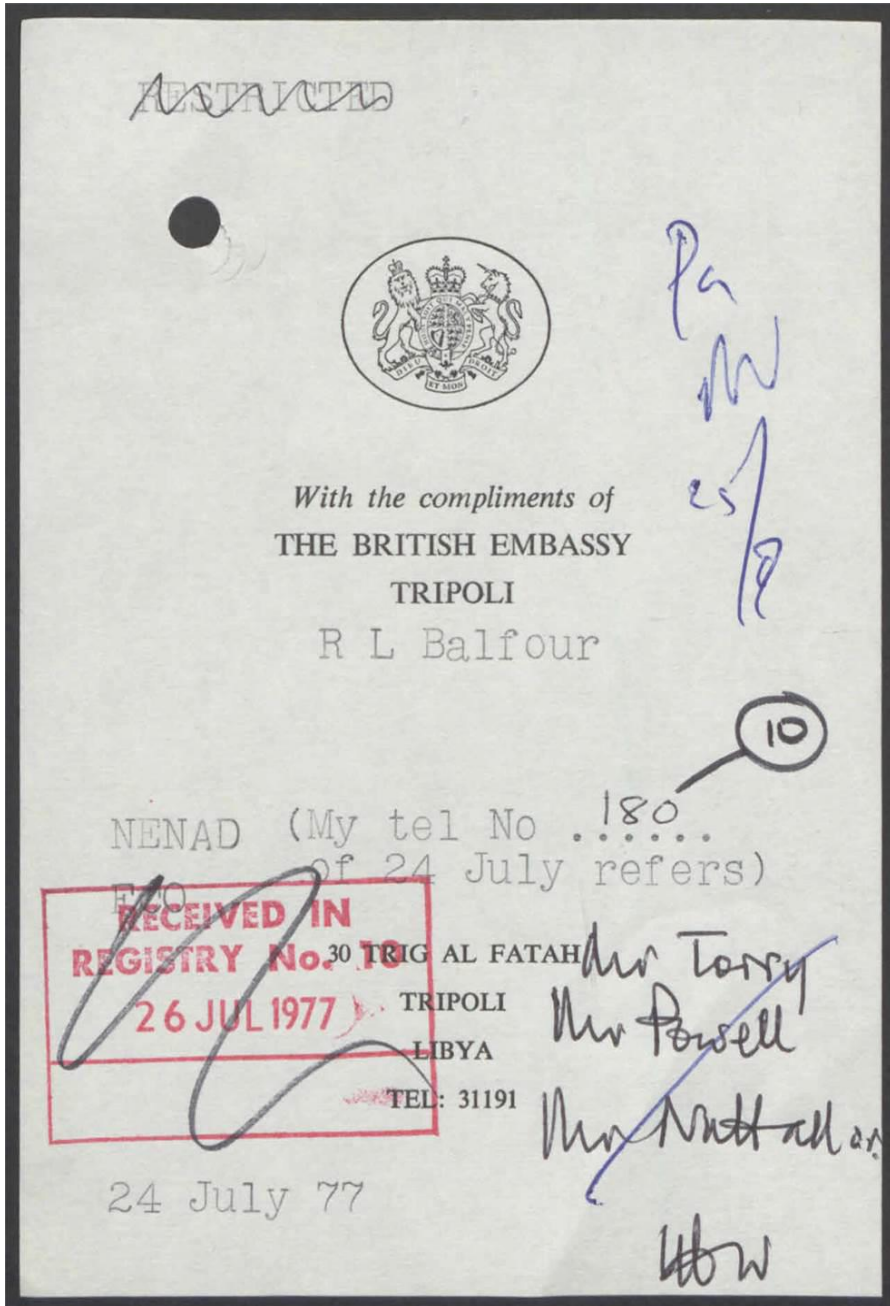 RESTRICTED
DIEU ET MON DROIT
Pa
With the compliments of
25/8
THE BRITISH EMBASSY
TRIPOLI
R L Balfour
10
NENAD (My tel No .180.....
FCO of 24 July refers)
RECEIVED IN
REGISTRY No. 18
26 JUL 1977
30 TRIG AL FATAH
TRIPOLI
LIBYA
TEL: 31191
Mr Torry
Mr Powell
Mr Nuttall
24 July 77